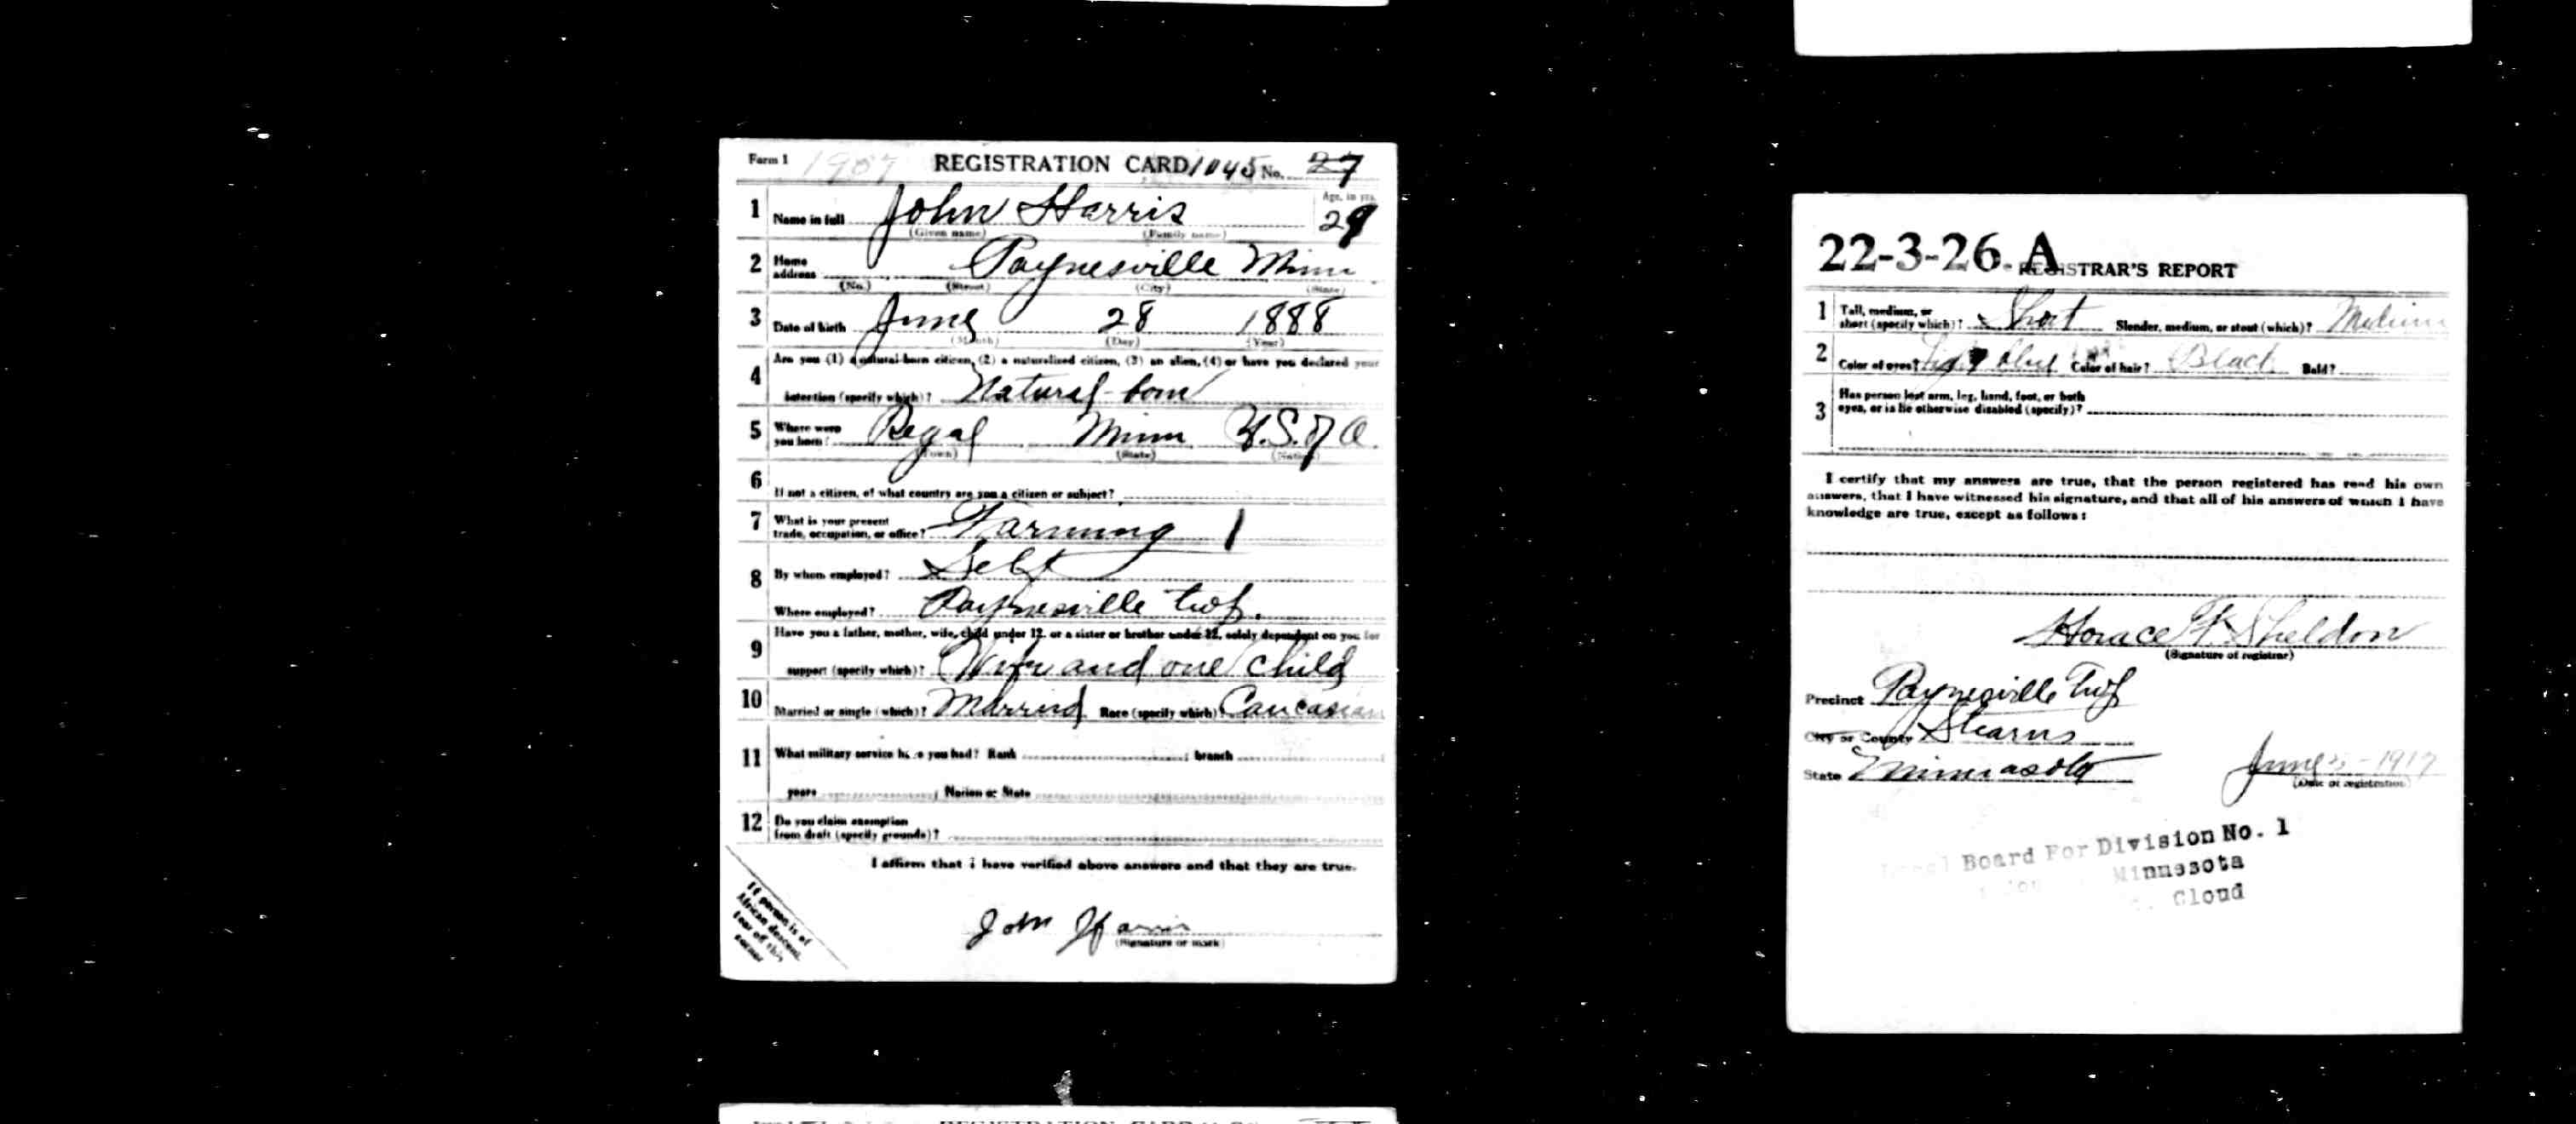 Form 1 1907 REGISTRATION CARD 1045 No. 27
1 Name in full John Harris Age, in yrs. 29
(Given name) (Family name)
2 Home address Paynesville Minn
(No.) (Street) (City) (State)
3 Date of birth June 28 1888
(Month) (Day) (Year)
4 Are you (1) a natural-born citizen, (2) a naturalized citizen, (3) an alien, (4) or have you declared your
intention (specify which)? Natural-born
5 Where were you born? Regal Minn U.S. of A.
(Town) (State) (Nation)
6 If not a citizen, of what country are you a citizen or subject?
7 What is your present
trade, occupation, or office? Farming 1
8 By whom employed? Self
Where employed? Paynesville twp.
9 Have you a father, mother, wife, child under 12, or a sister or brother under 12, solely dependent on you for
support (specify which)? Wife and one child
10 Married or single (which)? Married Race (specify which)? Caucasian
11 What military service have you had? Rank ; branch
years ; Nation or State
12 Do you claim exemption
from draft (specify grounds)?
I affirm that I have verified above answers and that they are true.
John Harris
(Signature or mark)
If person is of
African descent,
tear off this
corner
22-3-26. A REGISTRAR'S REPORT
1 Tall, medium, or
short (specify which)? Short Slender, medium, or stout (which)? Medium
2 Color of eyes? blue Color of hair? Black Bald?
3 Has person lost arm, leg, hand, foot, or both
eyes, or is he otherwise disabled (specify)?
I certify that my answers are true, that the person registered has read his own
answers, that I have witnessed his signature, and that all of his answers of which I have
knowledge are true, except as follows:
Horace F. Sheldon
(Signature of registrar)
Precinct Paynesville Twp
City or County Stearns
State Minnesota June 5-1917
(Date of registration)
Local Board For Division No. 1
Minnesota
Cloud
REGISTRATION CARD